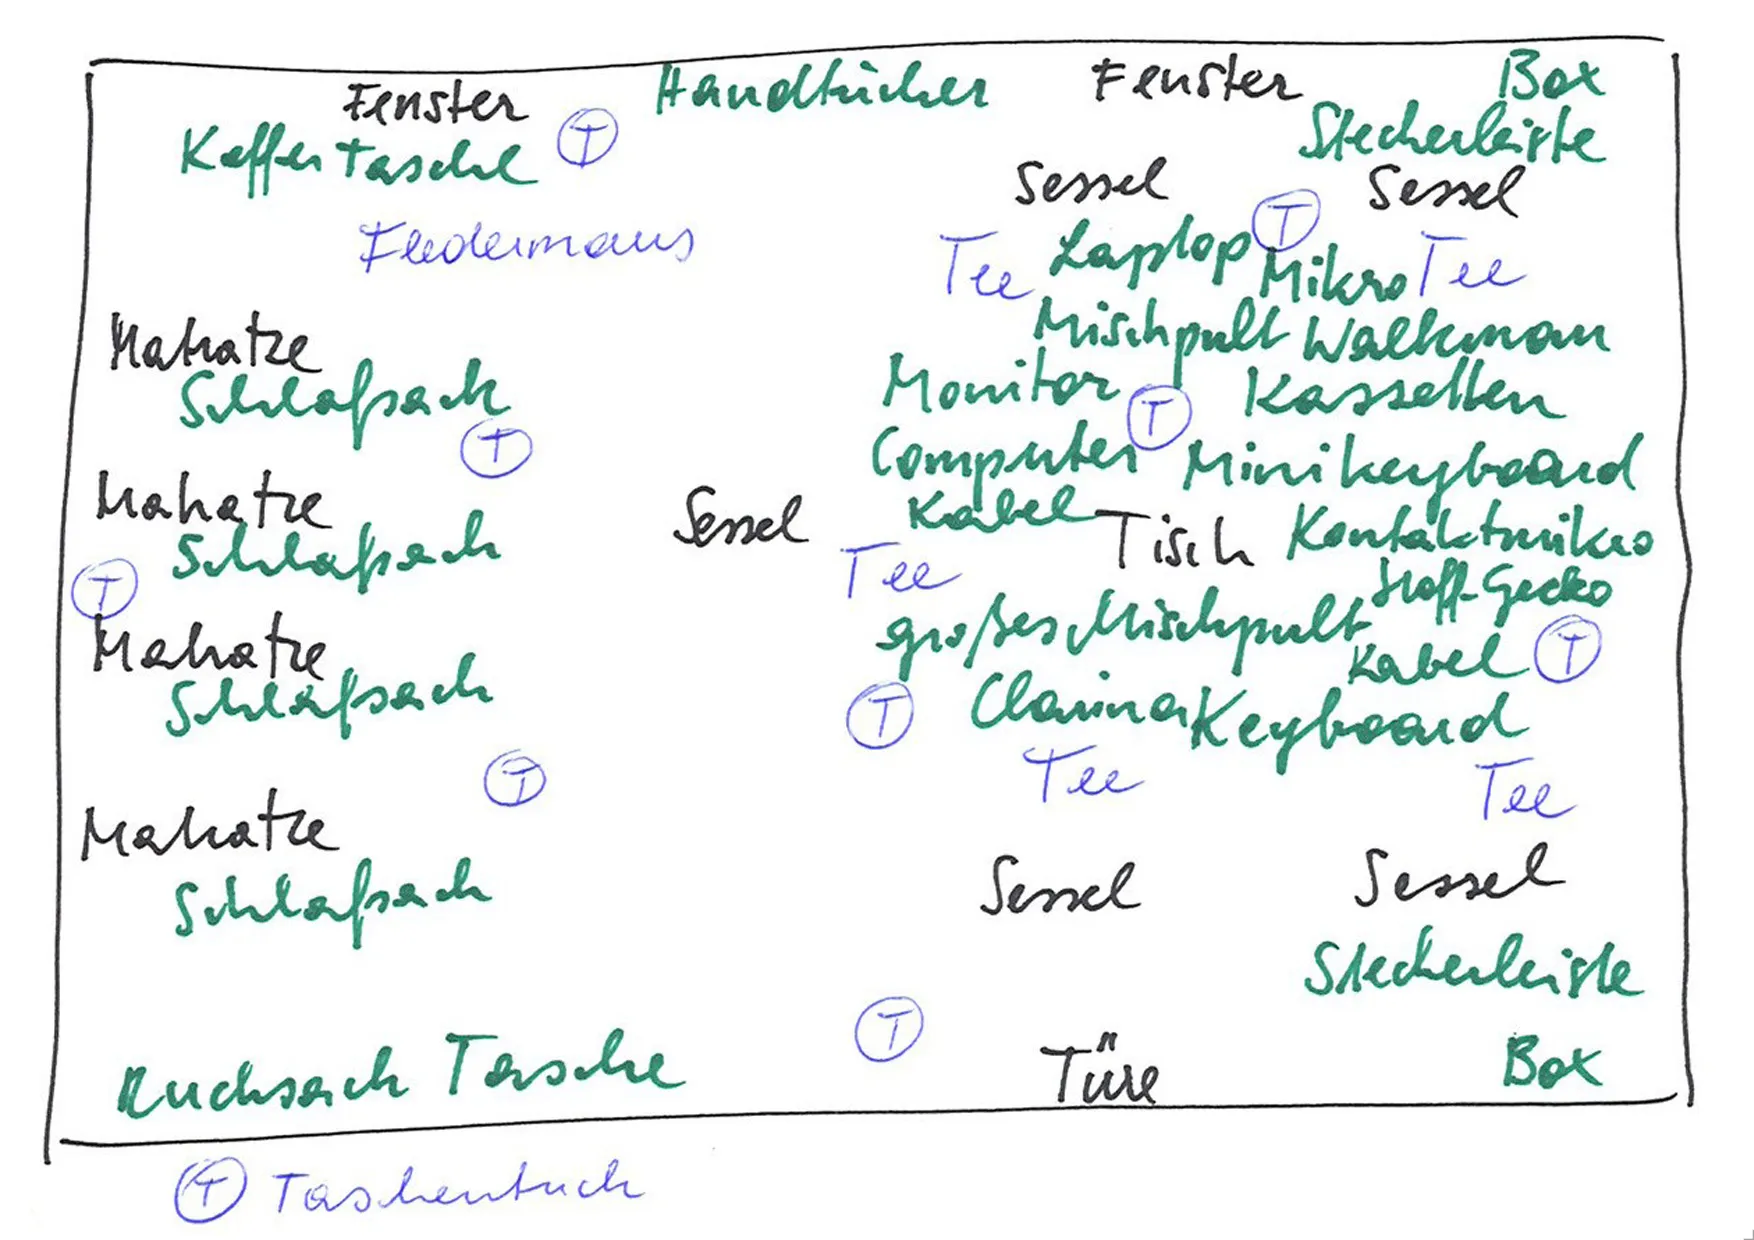 Fenster Handtücher Fenster Box
Koffer Tasche T Steckerleiste
Sessel Sessel
Fledermaus Tee Laptop T Mikro Tee
Matratze Mischpult Walkman
Schlafsack Monitor T Kassetten
T Computer Minikeyboard
Matratze Sessel Kabel Tisch Kontaktmikro
Schlafsack Tee Stoff-Gecko
T großes Mischpult Kabel T
Matratze
Schlafsack T Keyboard
T Tee Tee
Matratze
Schlafsack Sessel Sessel
Steckerleiste
Rucksack Tasche T Türe Box
T Taschentuch